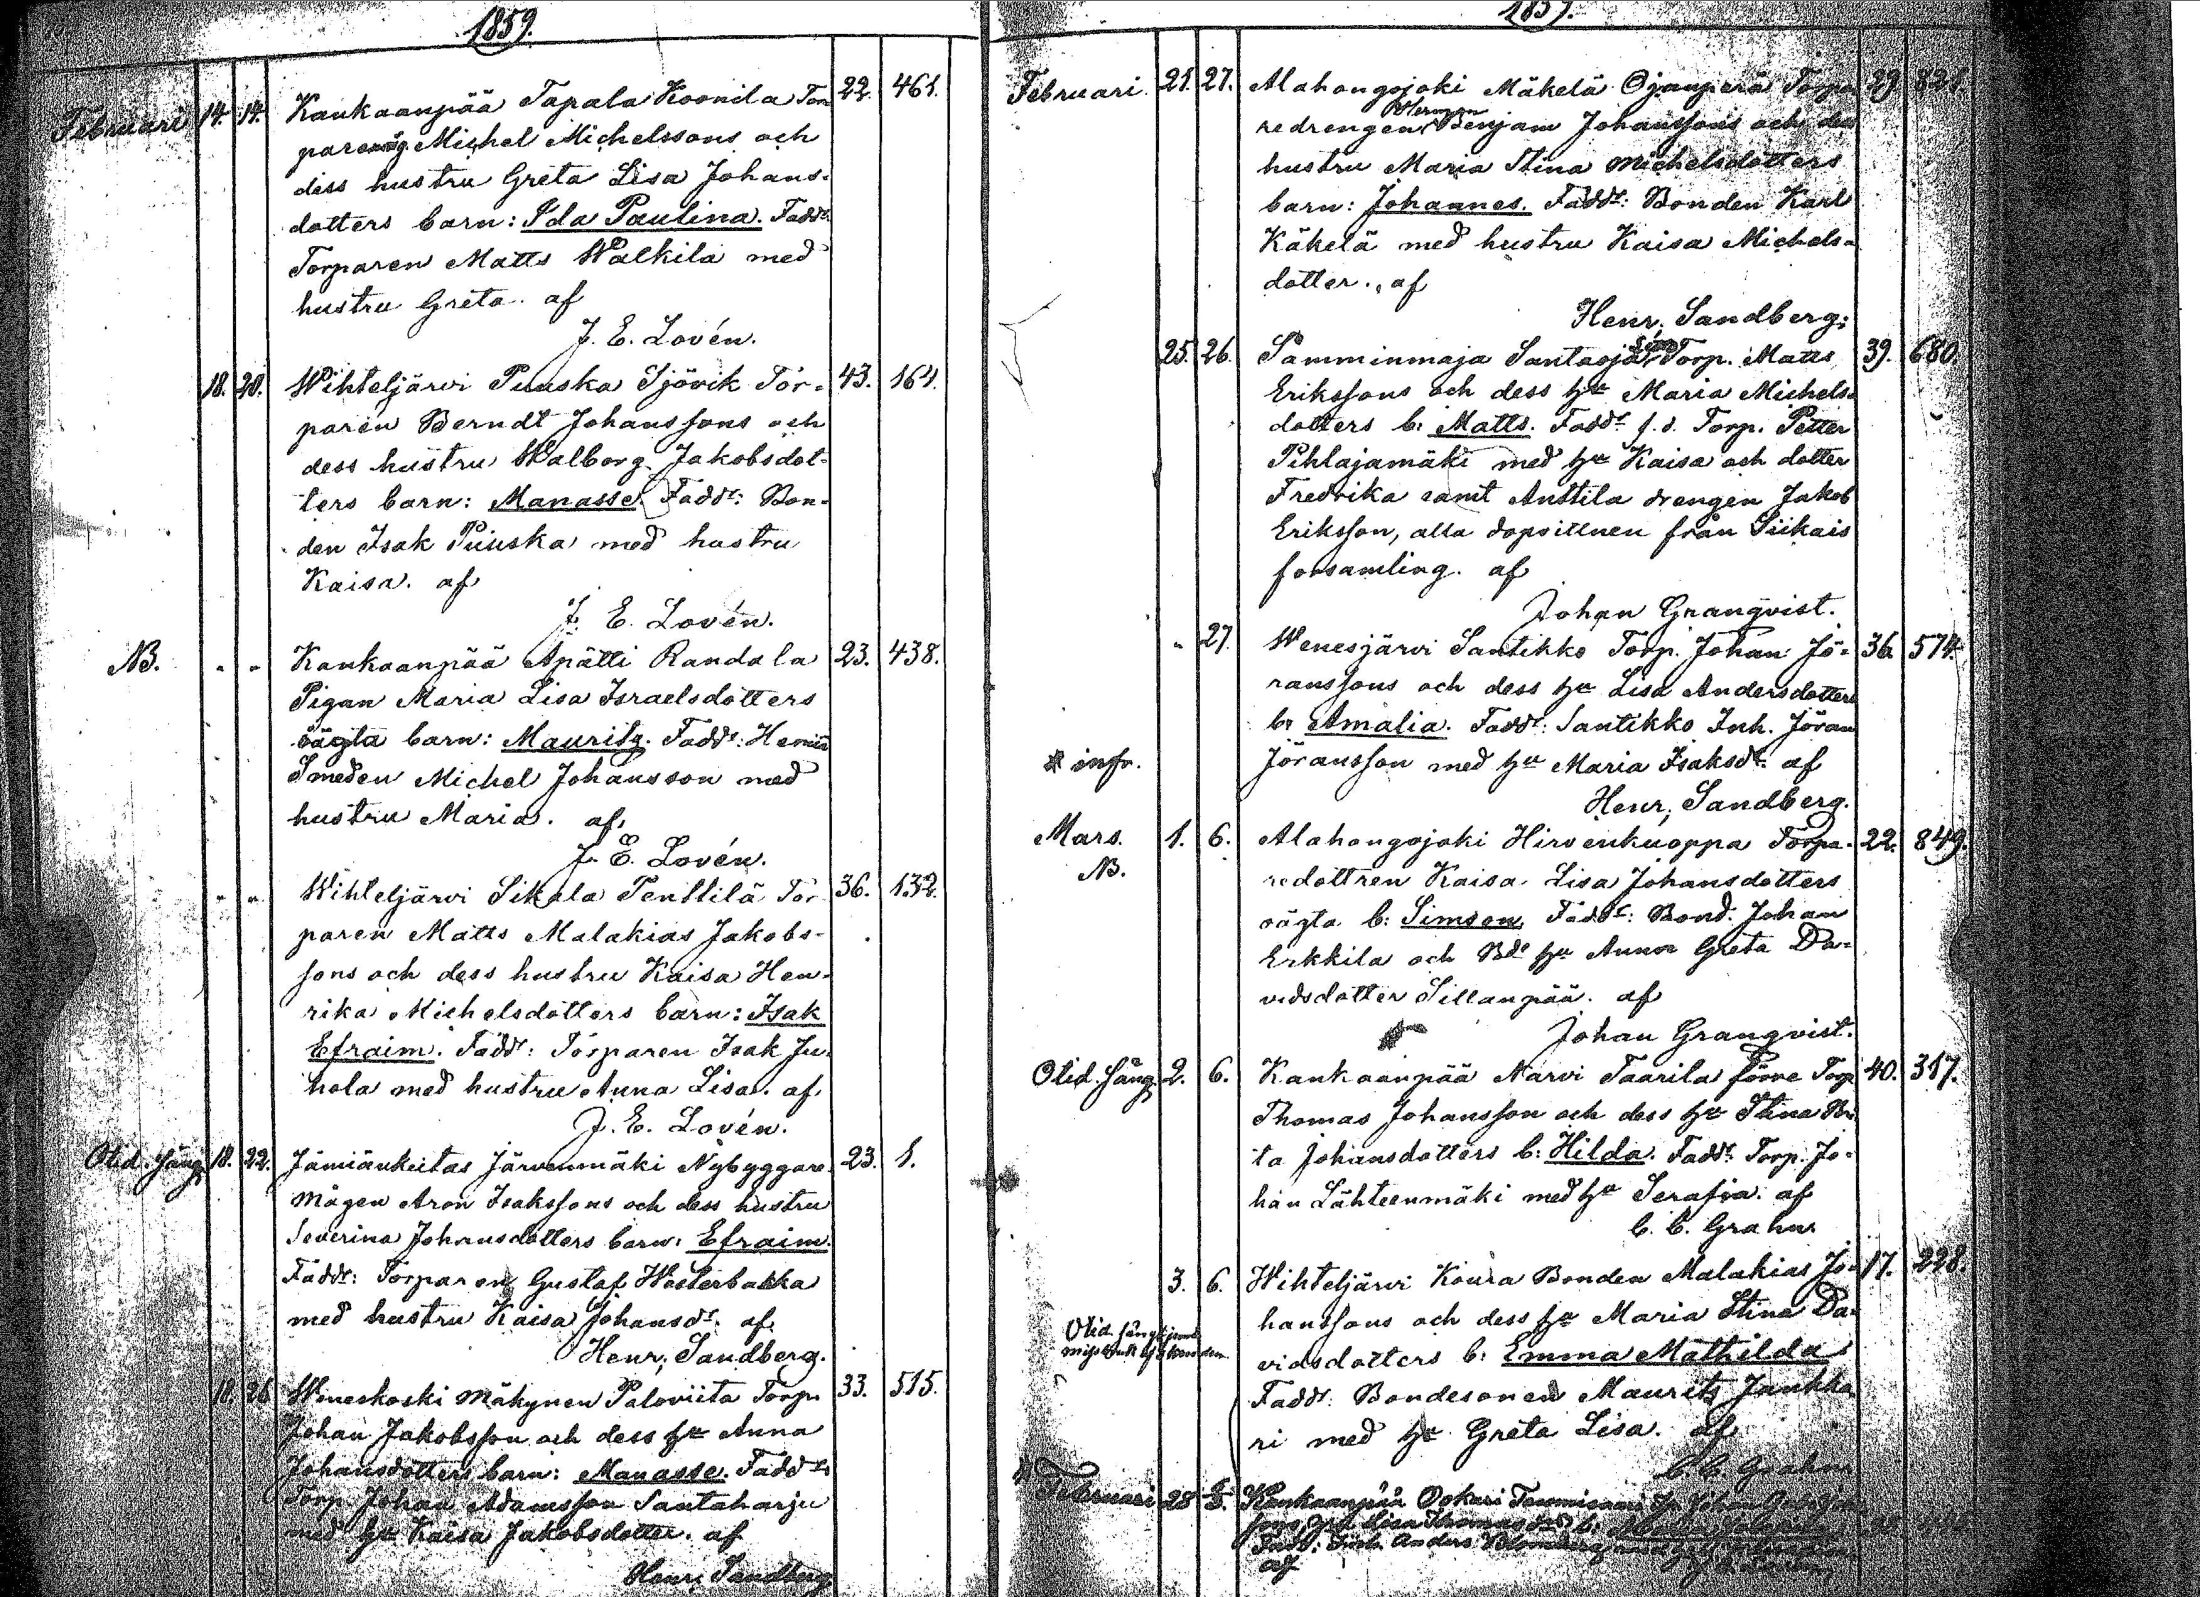 1859.
Februari 14. 14. Kankaanpää Tapala Koonila Tor 22. 461.
paremåg Michel Michelssons och
dess hustru Greta Lisa Johans-
dotters barn: Ida Paulina. Fadd:
Torparen Matts Walkila med
hustru Greta. af
J. E. Lovén.
18. 20. Wihteljärvi Puuska Sjövik Tor- 43. 161.
paren Berndt Johanssons och
dess hustru Walborg Jakobsdot-
ters barn: Manasse. Faddr: Bon-
den Isak Puuska med hustru
Kaisa. af
J. E. Lovén.
NB. " " Kankaanpää Apätti Randala 23. 438.
Pigan Maria Lisa Israelsdotters
oägta barn: Mauritz. Faddr:
Smeden Michel Johansson med
hustru Maria. af
J. E. Lovén.
" " Wihteljärvi Sikala Penttilä Tor 36. 132.
paren Matts Malakias Jakobs-
sons och dess hustru Kaisa Hen-
rika Michelsdotters barn: Isak
Efraim. Faddr: Torparen Isak Ju-
hola med hustru Anna Lisa. af
J. E. Lovén.
Otid. säng. 18. 22. Jämiänkeitas Järvenmäki Nybyggare 23. 1.
mågen Aron Isakssons och dess hustru
Severina Johansdotters barn: Efraim.
Faddr: Torparen Gustaf Westerbacka
med hustru Kaisa Johansdr. af
Henr. Sandberg.
18. 26 Weneskoski Mäkynen Paloviita Torp. 33. 515.
Johan Jakobsson och dess hu Anna
Johansdotters barn: Manasse. Faddr
Torp. Johan Adamsson Santaharju
med hu Kaisa Jakobsdotter. af
Henr. Sandberg
1859.
Februari. 21. 27. Alahongojoki Mäkelä Ojanperä Torpa 29 821.
Herman
redrengen Benjam Johanssons och des
hustru Maria Stina Michelsdotters
barn: Johannes. Faddr: Bonden Karl
Käkelä med hustru Kaisa Michels-
dotter. af
Henr. Sandberg.
25. 26. Samminmaja Santaoja Torp. Matts 39. 680.
Erikssons och dess hu Maria Michels-
dotters b: Matts. Faddr f.d. Torp. Petter
Pihlajamäki med hu Kaisa och dotter
Fredrika samt Anttila drengen Jakob
Eriksson, alla dopvittnen från Siikais
forsamling. af
Johan Granqvist.
" 27. Wenesjärvi Santikko Torp. Johan Jö- 36. 574.
ranssons och dess hu Lisa Andersdotters
b: Amalia. Faddr: Santikko Inh. Jöran
infr. Jöransson med hu Maria Isaksdr. af
Henr. Sandberg.
Mars. 1. 6. Alahongojoki Hirvenkuoppa Torpa- 22. 849.
NB. redottren Kaisa Lisa Johansdotters
oägta b: Simson. Faddr: Bond. Johan
Erkkila och Bde hu Anna Greta Da-
vidsdotter Sillanpää. af
Johan Granqvist.
Otid. säng. 2. 6. Kankaanpää Narvi Taarila förre Torp 40. 317.
Thomas Johansson och dess hu Stina Bri
ta Johansdotters b: Hilda. Faddr: Torp. Jo-
han Lähteenmäki med hu Serafia. af
C. C. Grahn.
3. 6. Wihteljärvi Koura Bonden Malakias Jo- 17. 228.
hanssons och dess hu Maria Stina Da-
Otid. säng
vidsdotters b: Emma Mathilda
Faddr: Bondesonen Maurits Junkka
ri med hu Greta Lisa. af
C. C. Grahn
Februari 28 Kankaanpää
Lisa b:
Fadd: Anders
af